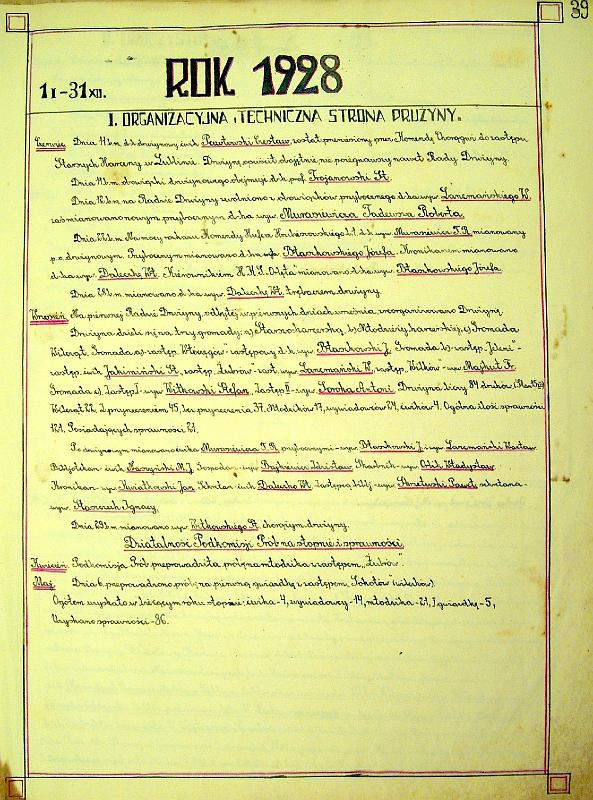 39
1 I – 31 XII. ROK 1928
I. ORGANIZACYJNA i TECHNICZNA STRONA DRUŻYNY.
Czerwiec Dnia 11 b.m. d-h drużynowy ćwik Pawłowski Czesław, został przeniesiony przez Komendę Chorągwi do zastępu
Starszych Harcerzy w Lublinie. Drużynę opuścił obojętnie nie pożegnawszy nawet Rady Drużyny.
Dnia 11 b.m. obowiązki drużynowego objmuje d-h prof. Trojanowski St.
Dnia 18 b.m. na Radzie Drużyny zwolniono z obowiązków przybocznego d-ha wyw. Laremańskiego W.
zaś mianowano nowym przybocznym d-ha wyw. Murasiewicza Tadeusza Roberta.
Dnia b.m. Na mocy rozkazu Komendy Hufca Harcerskiego L. 1. d-h wyw. Murasiewicz T.R. mianowany
p.o. drużynowym. Przybocznym mianowano d-ha Ptaszkowskiego Józefa. Kronikarzem mianowano
d-ha wyw. Daleczkę Wł. Kierownikiem "Orlęta" mianowano d-ha wyw. Ptaszkowskiego Józefa.
Dnia 28 b.m. mianowano d-ha wyw. Daleczkę Wł. trębaczem drużyny.
Wrzesień Na pierwszej Radzie Drużyny, odbytej w pierwszych dniach września, zreorganizowano Drużynę.
Drużyna dzieli się na trzy gromady: a) Starszoharcerską, b) Młodzieży harcerskiej, c) Gromada
Wilcząt. Gromada a) zastęp "Włóczęgów" zastępowy d-h wyw. Ptaszkowski J. Gromada b) zastęp "Jeleni" -
zastęp. ćwik Jakimiński St., zastęp "Żubrów" - zast. wyw. Laremański W., zastęp "Wilków" - wyw. Majkut Fr.
Gromada c), Zastęp I - wyw. Witkowski Stefan, Zastęp II - wyw. Soroka Antoni. Drużyna liczy 84 druhów
Wilcząt 22. Z przyrzeczeniem 45, bez przyrzeczenia 37. Młodzików 17, wywiadowców 24, ćwików 4. Ogólna ilość sprawności
121. Posiadających sprawności 21.
mianowano ćwika Murasiewicza T.R. przybocznymi - wyw. Ptaszkowski J. i wyw. Laremański Wacław.
Bibljotekarz - ćwik Naszyński M.J. Gospodarz - wyw. Bajkiewicz Zdzisław. Skarbnik - wyw. Olik Władysław
Kronikarz - wyw. Kwiatkowski Jan. ćwik Daleczko Wł. Zastępca bibljot. - wyw. Skretuski Paweł,
wyw. Ignacy.
Dnia 29 b.m. mianowano wyw. Witkowskiego St. chorążym drużyny.
Działalność Podkomisji Prób na stopnie i sprawności.
Kwiecień Podkomisja Prób przeprowadziła próbę na młodzika z zastępem "Żubrów".
Maj. Dnia 6 przeprowadzono próbę na pierwszą gwiazdkę z zastępem "Sokołów" (wilczków).
Ogółem uzyskało w bieżącym roku stopni: ćwika - 4, wywiadowcy - 14, młodzika - 21, I gwiazdkę - 5,
Uzyskano sprawności - 86.